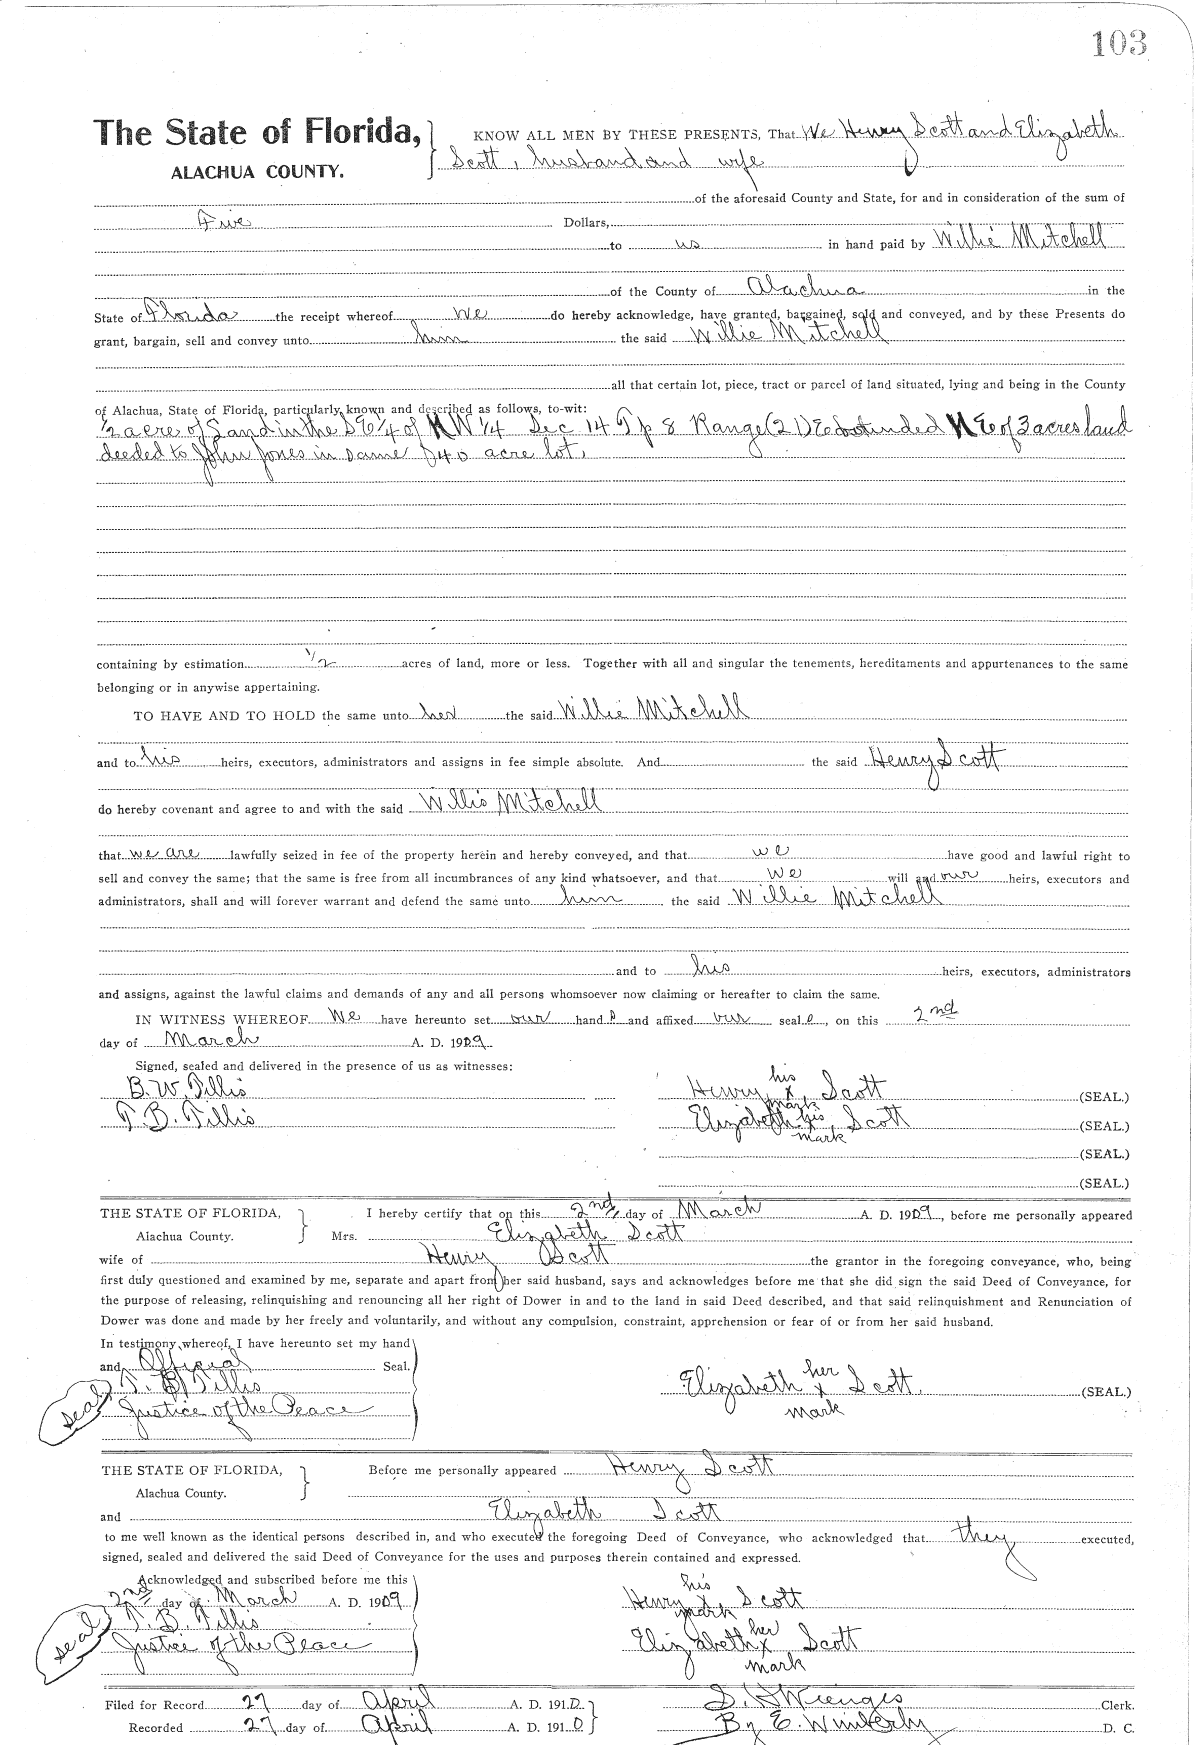 103
The State of Florida,
ALACHUA COUNTY.
KNOW ALL MEN BY THESE PRESENTS, That We Henry Scott and Elizabeth
Scott, husband and wife
of the aforesaid County and State, for and in consideration of the sum of
Five Dollars,
to us in hand paid by Willie Mitchell
of the County of Alachua in the
State of Florida the receipt whereof we do hereby acknowledge, have granted, bargained, sold and conveyed, and by these Presents do
grant, bargain, sell and convey unto him the said Willie Mitchell
all that certain lot, piece, tract or parcel of land situated, lying and being in the County
of Alachua, State of Florida, particularly known and described as follows, to-wit:
1/2 acre of Land in the S E 1/4 of N W 1/4 Sec 14 Tp 8 Range (21) E bounded N E of 3 acres land
deeded to John Jones in same 40 acre lot.
containing by estimation 1/2 acres of land, more or less. Together with all and singular the tenements, hereditaments and appurtenances to the same
belonging or in anywise appertaining.
TO HAVE AND TO HOLD the same unto her the said Willie Mitchell
and to his heirs, executors, administrators and assigns in fee simple absolute. And the said Henry Scott
do hereby covenant and agree to and with the said Willis Mitchell
that we are lawfully seized in fee of the property herein and hereby conveyed, and that we have good and lawful right to
sell and convey the same; that the same is free from all incumbrances of any kind whatsoever, and that we will and our heirs, executors and
administrators, shall and will forever warrant and defend the same unto him the said Willie Mitchell
and to his heirs, executors, administrators
and assigns, against the lawful claims and demands of any and all persons whomsoever now claiming or hereafter to claim the same.
IN WITNESS WHEREOF We have hereunto set our hand s and affixed our seal s, on this 2nd
day of March A. D. 1909.
Signed, sealed and delivered in the presence of us as witnesses:
B. W. Tillis
T. B. Tillis
his
Henry x Scott (SEAL.)
mark
Elizabeth his x Scott (SEAL.)
mark
(SEAL.)
(SEAL.)
THE STATE OF FLORIDA,
Alachua County.
I hereby certify that on this 2nd day of March A. D. 1909, before me personally appeared
Mrs. Elizabeth Scott
wife of Henry Scott the grantor in the foregoing conveyance, who, being
first duly questioned and examined by me, separate and apart from her said husband, says and acknowledges before me that she did sign the said Deed of Conveyance, for
the purpose of releasing, relinquishing and renouncing all her right of Dower in and to the land in said Deed described, and that said relinquishment and Renunciation of
Dower was done and made by her freely and voluntarily, and without any compulsion, constraint, apprehension or fear of or from her said husband.
In testimony whereof, I have hereunto set my hand
and Official Seal.
seal T. B. Tillis
Justice of the Peace
Elizabeth her x Scott. (SEAL.)
mark
THE STATE OF FLORIDA,
Alachua County.
Before me personally appeared Henry Scott
and Elizabeth Scott
to me well known as the identical persons described in, and who executed the foregoing Deed of Conveyance, who acknowledged that they executed,
signed, sealed and delivered the said Deed of Conveyance for the uses and purposes therein contained and expressed.
Acknowledged and subscribed before me this
2nd day of March A. D. 1909
seal T. B. Tillis
Justice of the Peace
his
Henry x Scott
mark
her
Elizabeth x Scott
mark
Filed for Record 27 day of April A. D. 191.0.
Recorded 27 day of April A. D. 191.0
S. H. Wienges Clerk.
By E. Wimberly D. C.